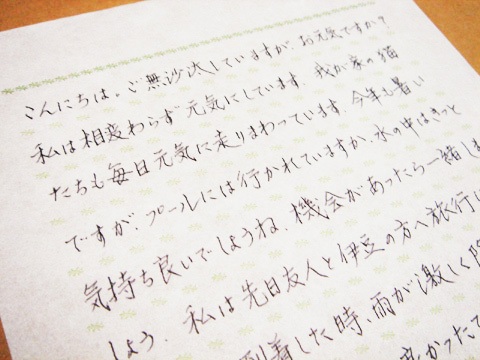 こんにちは。ご無沙汰していますが、お元気ですか?
私は相変わらず元気にしています。我が家の猫
たちも毎日元気に走りまわっています。今年も暑い
ですが、プールには行かれていますか、水の中はきっと
気持ち良いでしょうね。機会があったら一緒しま
しょう。私は先日友人と伊豆の方へ旅行に
到着した時、雨が激しく降
良かったで